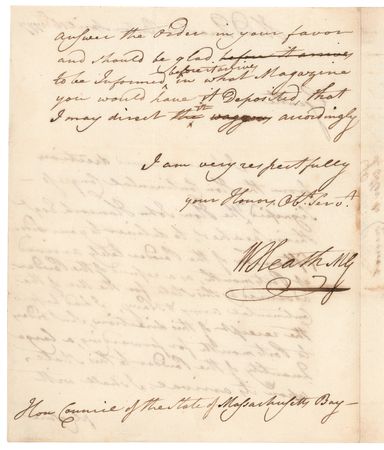 answer the order in your favor
and should be glad before it arrives
to be Informed before it arrives in what Magazine
you would have it Deposited that
I may direct the waggons accordingly
I am very respectfully
your Honors Obt Servt
W Heath MG
Hon Council of the State of Massachusetts Bay—